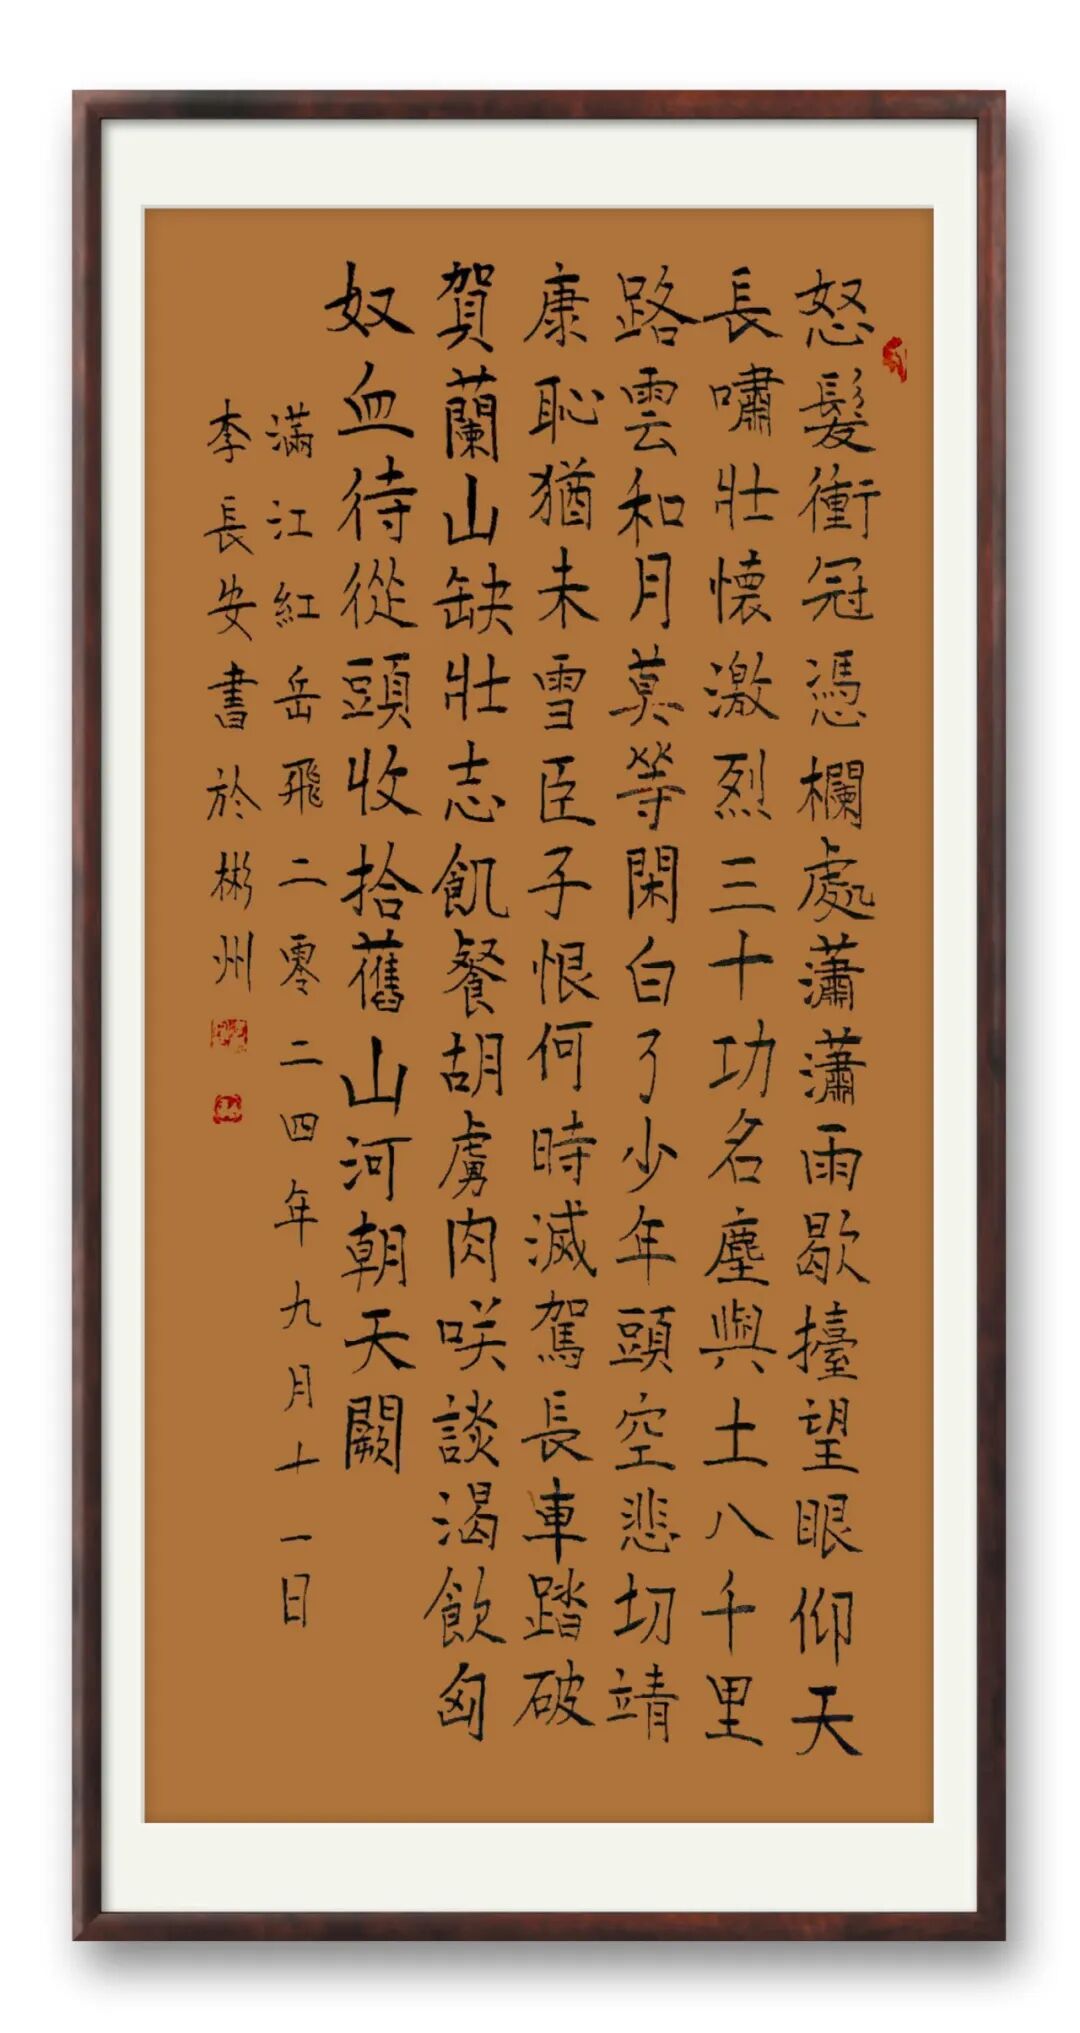 怒髮衝冠憑欄處瀟瀟雨歇擡望眼仰天
長嘯壯懷激烈三十功名塵與土八千里
路雲和月莫等閑白了少年頭空悲切靖
康恥猶未雪臣子恨何時滅駕長車踏破
賀蘭山缺壯志飢餐胡虜肉咲談渴飲匈
奴血待從頭收拾舊山河朝天闕
滿江紅岳飛二零二四年九月十一日
李長安書於彬州